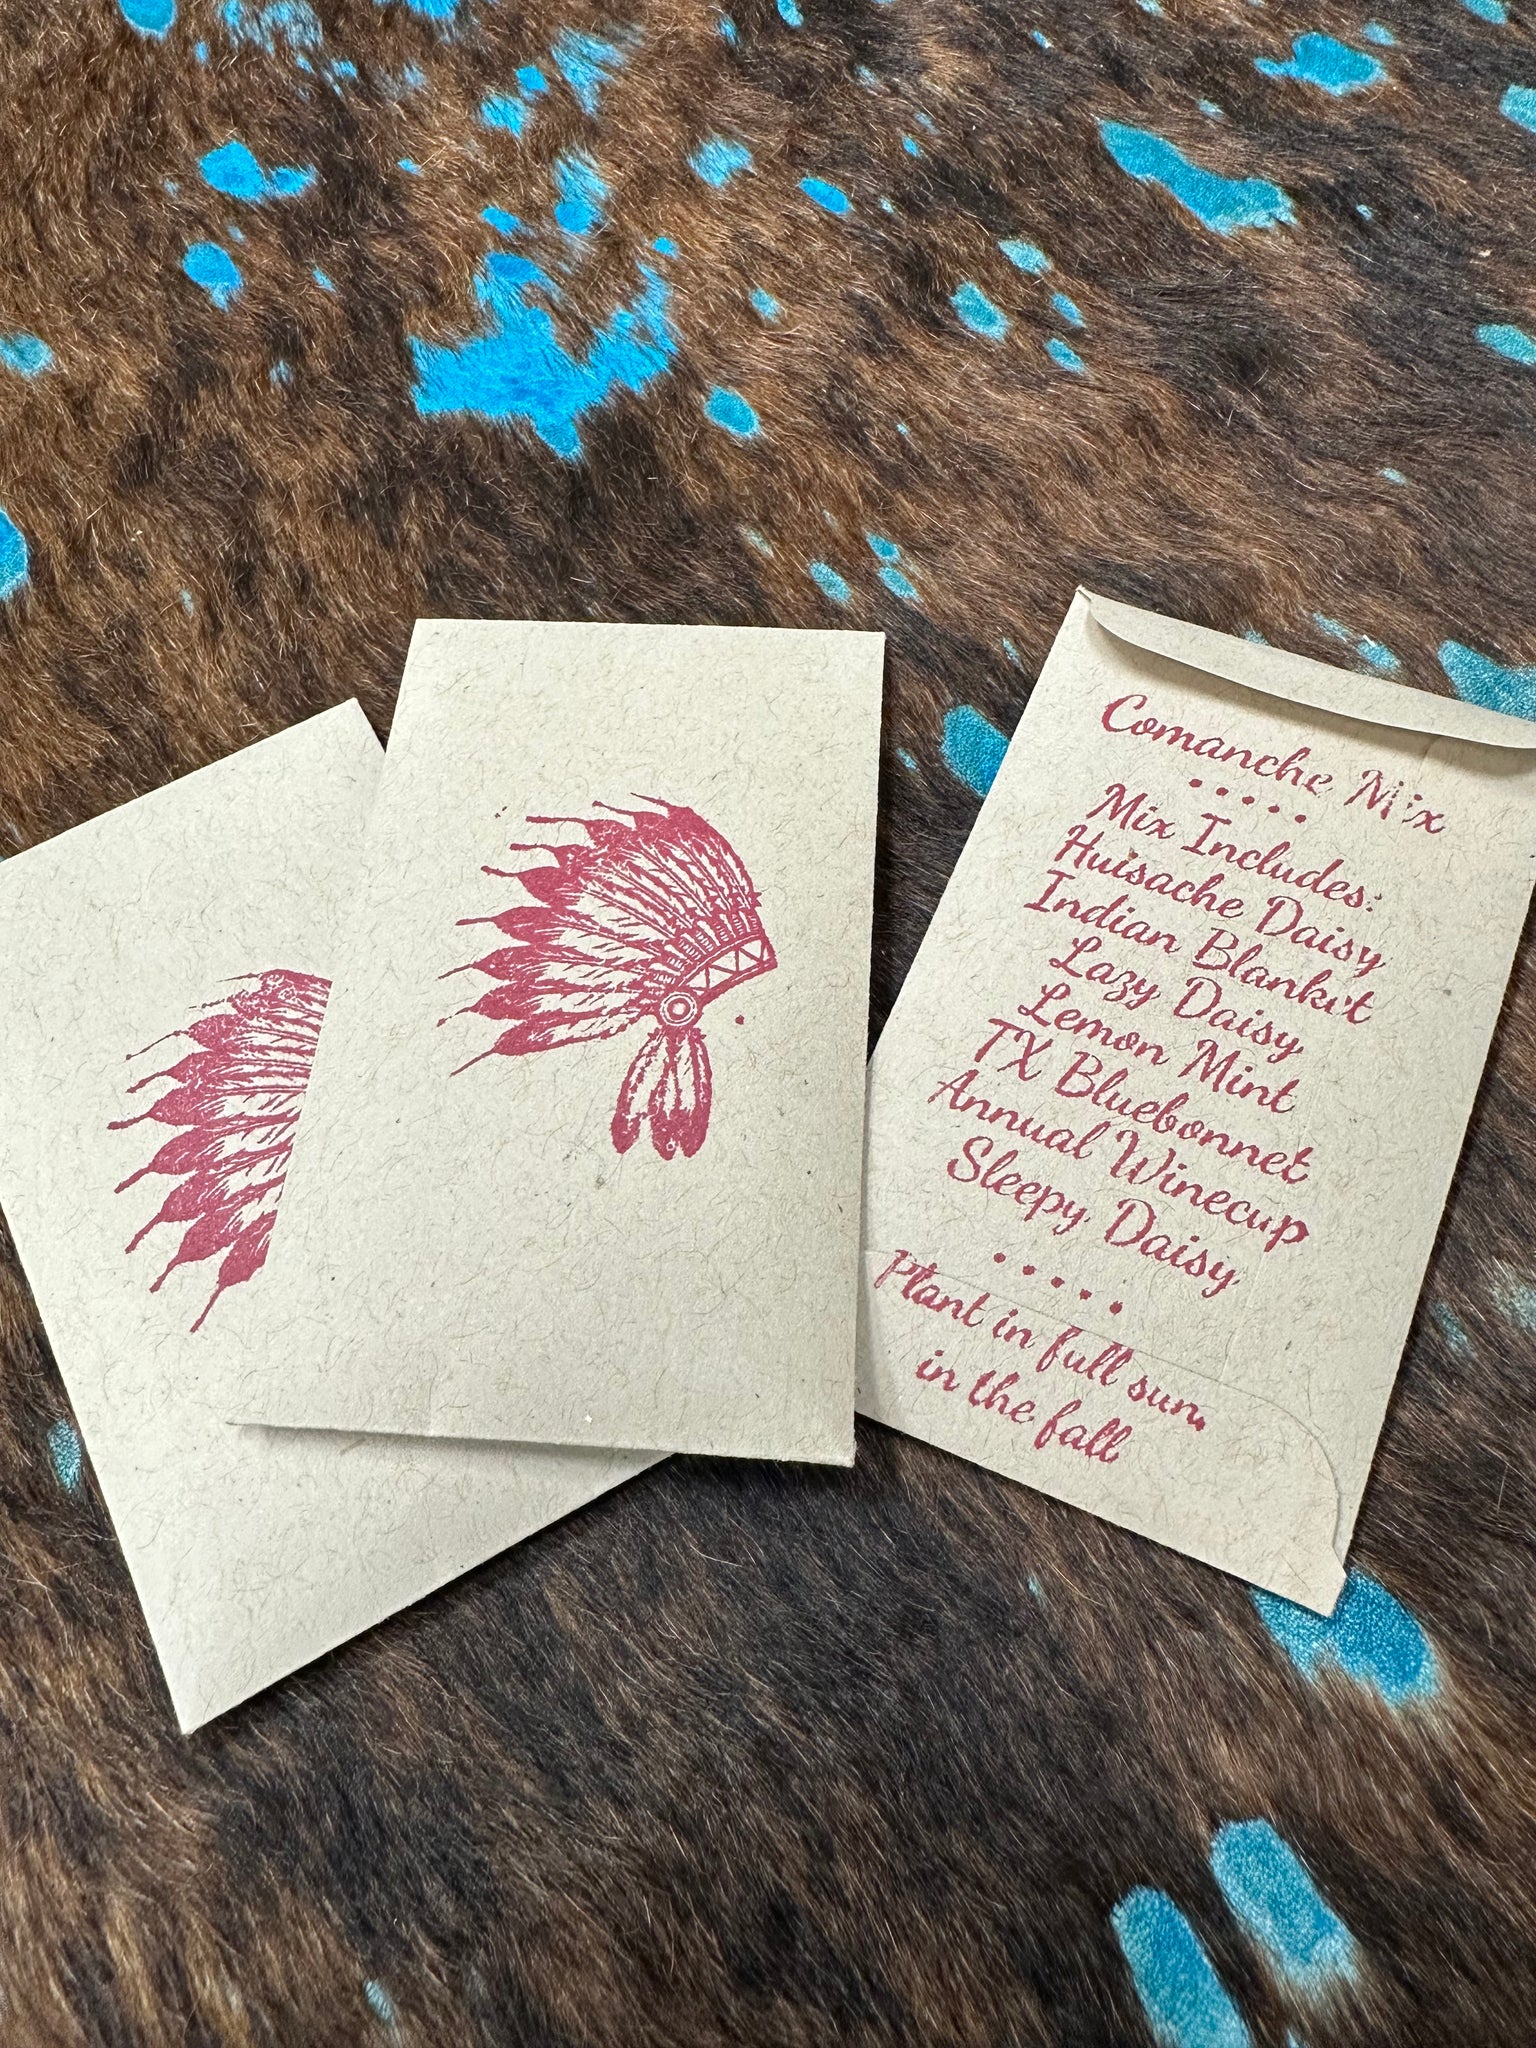 Comanche Mix
Mix Includes:
Huisache Daisy
Indian Blanket
Lazy Daisy
Lemon Mint
TX Bluebonnet
Annual Winecup
Sleepy Daisy
Plant in full sun,
in the fall